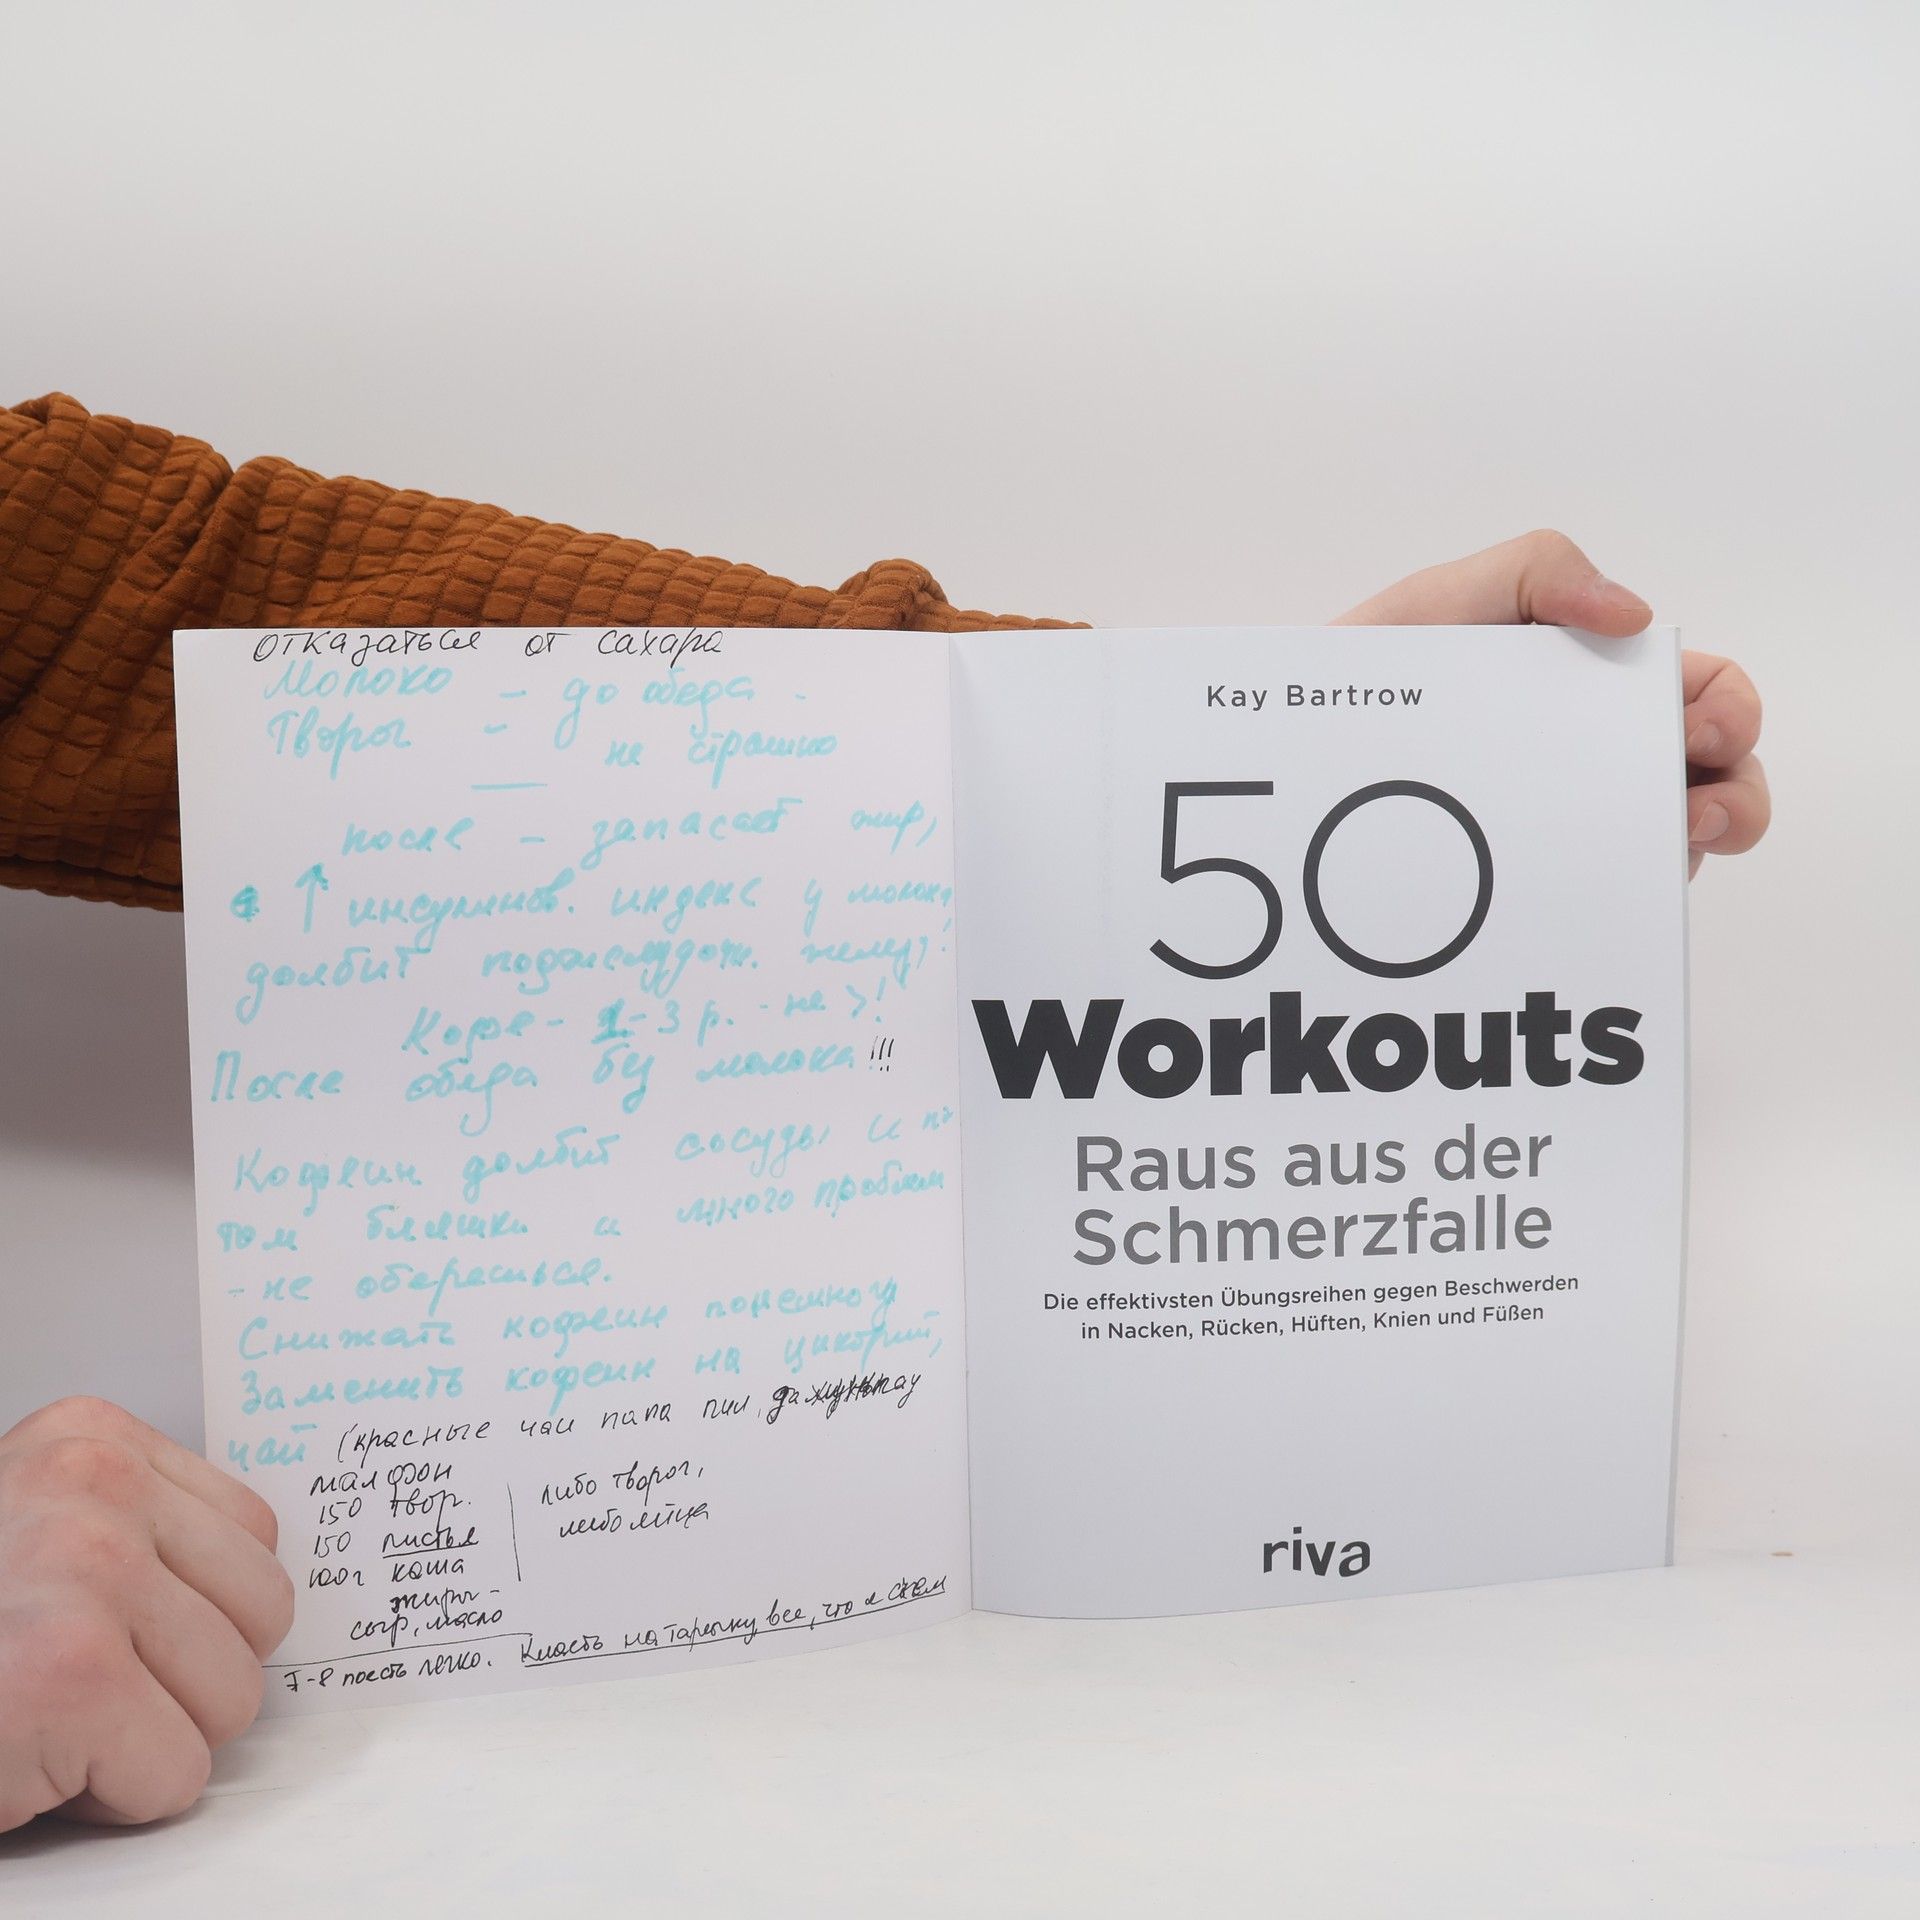 отказаться от сахара
Молоко – до обеда -
Творог – не страшно
после – запасает жир,
↑ инсулинов. индекс у молока,
долбит поджелудочн. желез!
Кофе - 1-3 р. - не >!
После обеда без молока!!!
Кофеин долбит сосуды и по
том бляшки и много проблем
- не оберешься.
Снижать кофеин понемногу
Заменить кофеин на цикорий,
чай (красные чаи папа пил,
150 твор.
150 листья
100г каша
жиры -
сыр, масло
либо творог,
либо яйца
7-8 поесть легко. Класть на тарелку все, что я съем
Kay Bartrow
50
Workouts
Raus aus der
Schmerzfalle
Die effektivsten Übungsreihen gegen Beschwerden
in Nacken, Rücken, Hüften, Knien und Füßen
riva